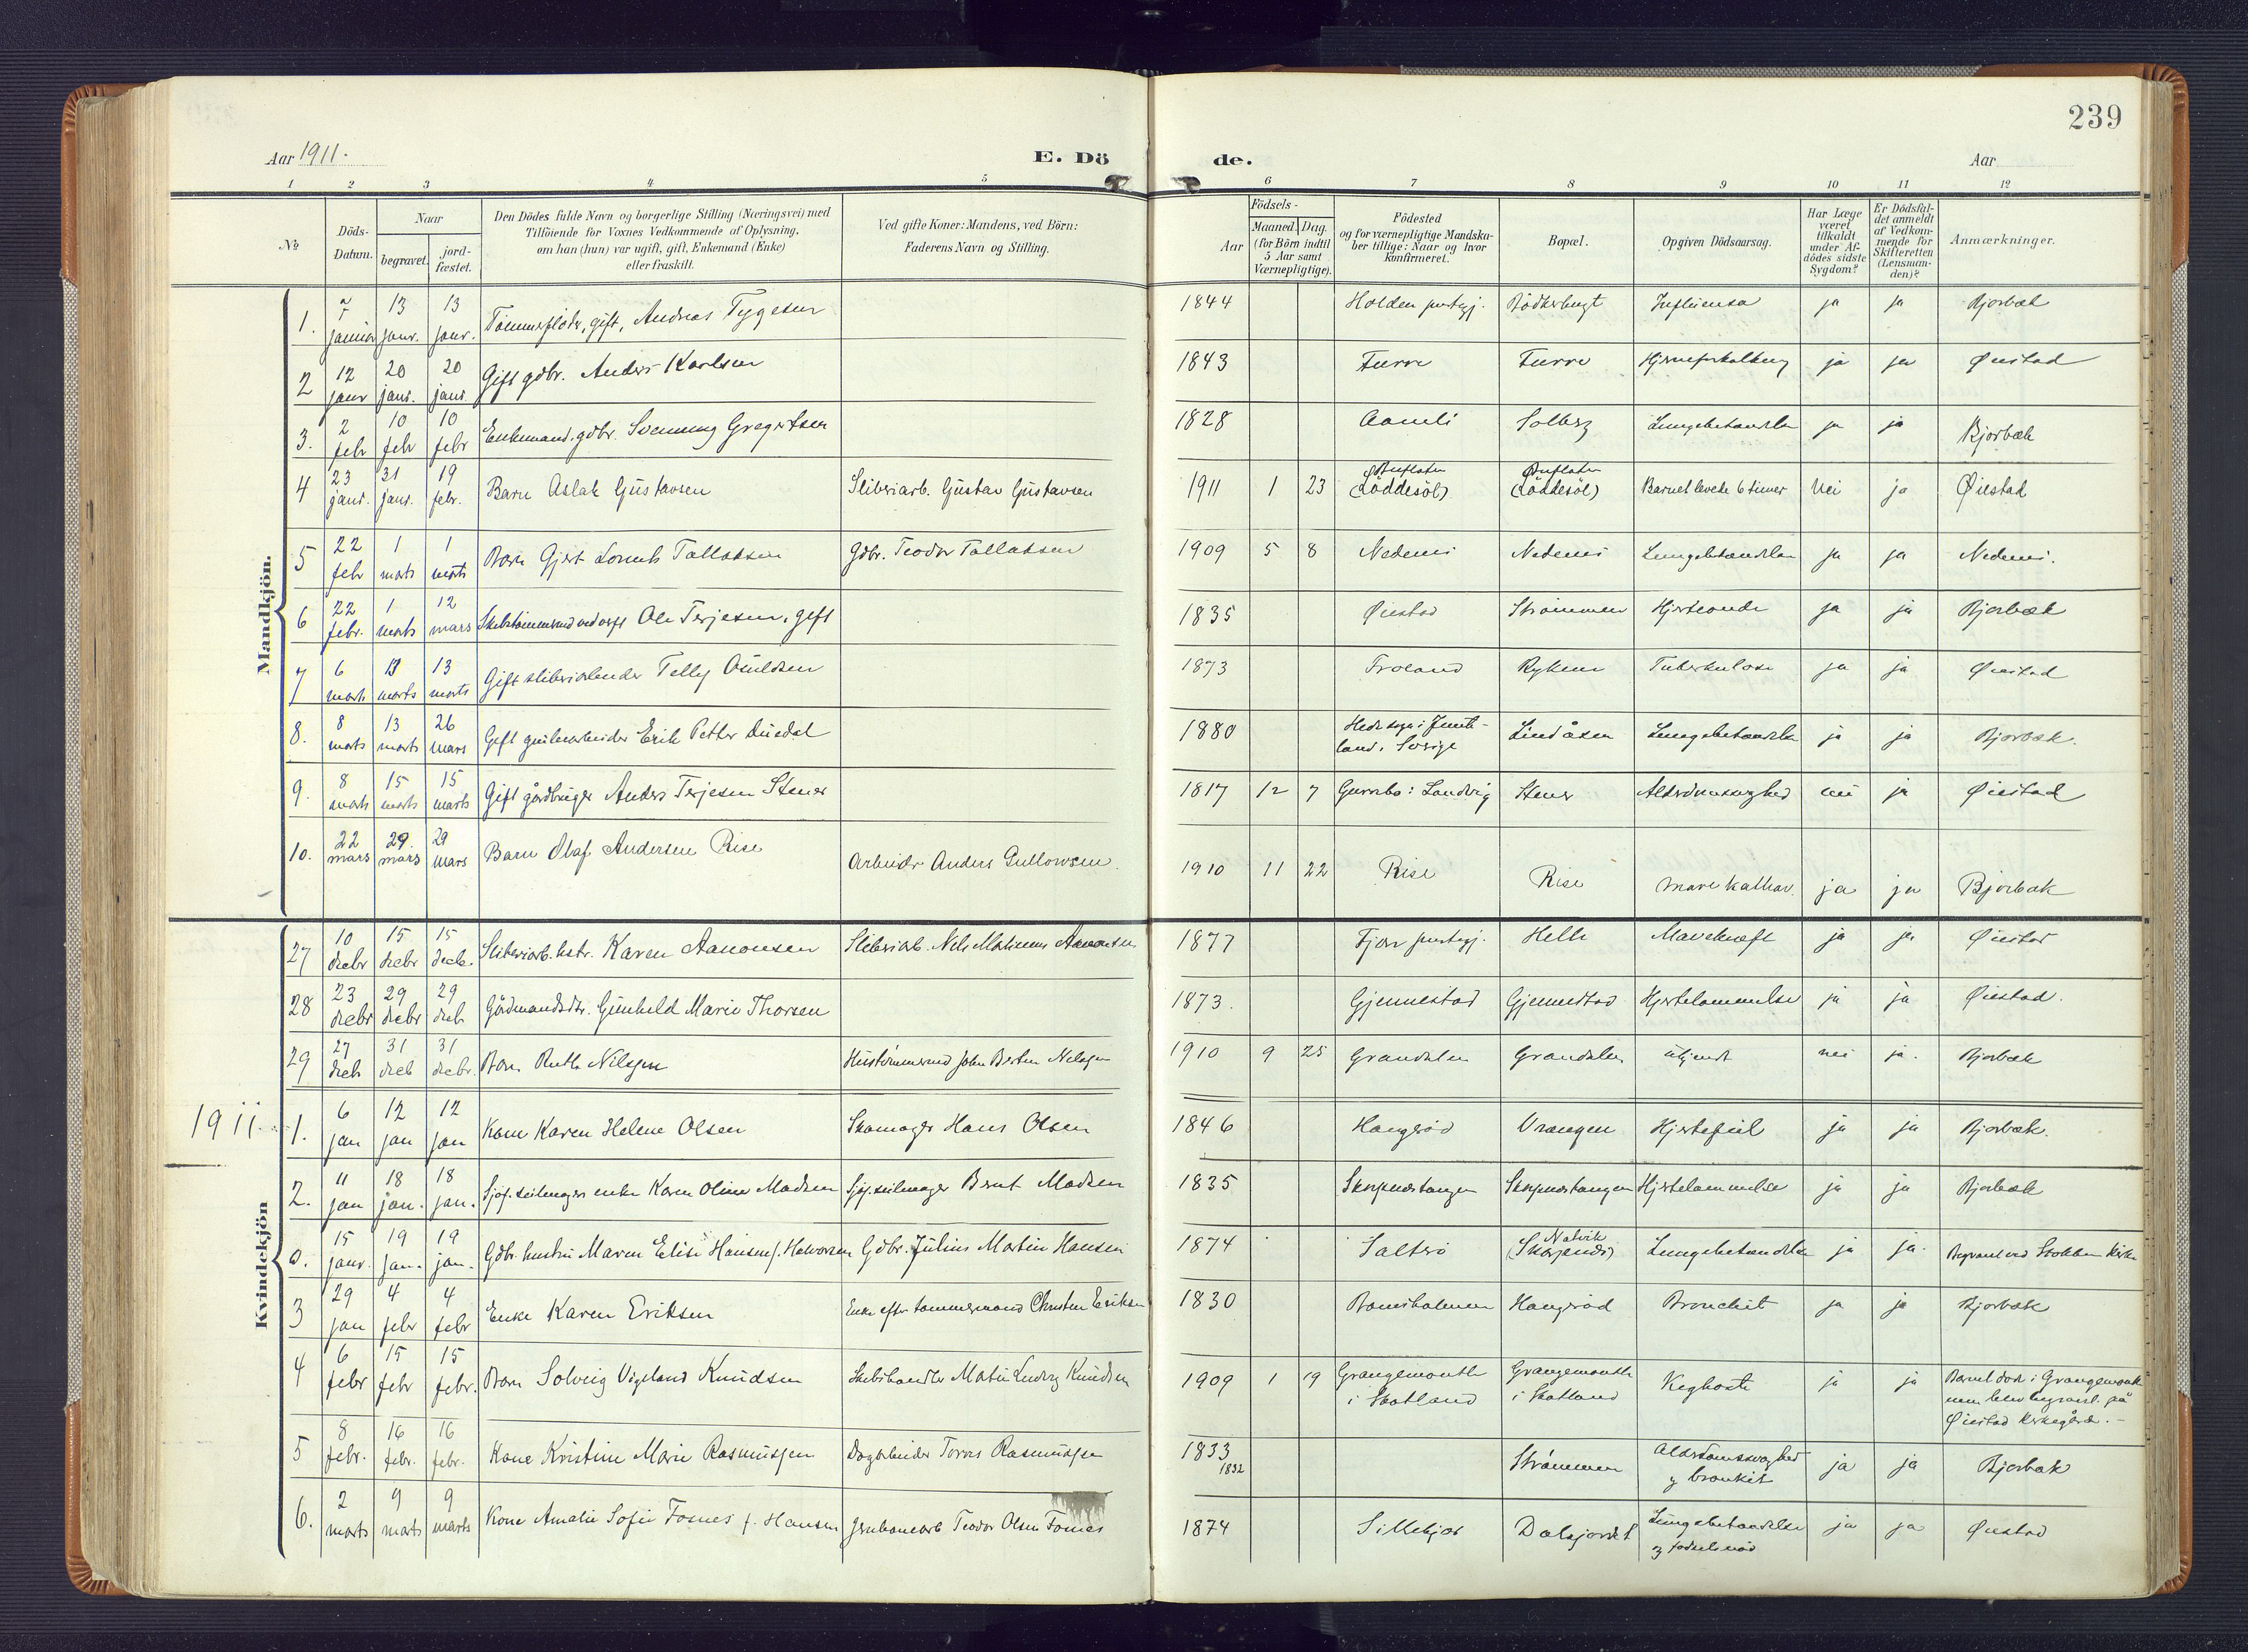 239
Aar 1911.
E. Dö
de.
Aar
1 2 3 4 5 6 7 8 9 10 11 12
№
Döds-Datum.
Naar
begravet.
jord-fæstet.
Den Dödes fulde Navn og borgerlige Stilling (Næringsvei) med
Tilföiende for Voxnes Vedkommende af Oplysning,
om han (hun) var ugift, gift, Enkemand (Enke)
eller fraskilt.
Ved gifte Koner: Mandens, ved Börn:
Faderens Navn og Stilling.
Födsels-
Aar
Maaned. Dag.
(for Börn indtil
5 Aar samt
Værnepligtige).
Födested
og for værnepligtige Mandska-
ber tillige: Naar og hvor
konfirmeret.
Bopæl.
Opgiven Dödsaarsag.
Har Læge
været
tilkaldt
under Af-
dödes sidste
Sygdom?
Er Dödsfal-
det anmeldt
af Vedkom-
mende for
Skifteretten
(Lensman-
den)?
Anmærkninger.
Mandkjön.
1. 7 januar 13 janr. 13 janr. Tømmerfløder, gift, Andreas Tygesen 1844 Holden prstgj. Bödkerbugt Influensa ja ja Bjorbæk
2 12 janr 20 janr. 20 janr. Gift gdbr. Anders Karlsen 1843 Furre Furre Hjerneforkalkning ja ja Øiestad
3. 2 febr 10 febr 10 febr Enkemand, gdbr. Svenning Gregertsen 1828 Aamli Solberg Lungebetændelse ja ja Bjorbæk
4 23 janr. 31 janr. 19 febr. Barn Aslak Gustavsen Sliberiarb. Gustav Gustavsen 1911 1 23 (Löddesöl) (Löddesöl) Barnet levede 6 timer Nei ja Øiestad
5 22 febr 1 marts 1 marts Barn Gjert Tallaksen Gdbr. Teodor Tallaksen 1909 5 8 Nedenes Nedenes Lungebetændelse ja ja Nedenes.
6 22 febr. 1 marts 12 mars Ole Terjesen, gift 1835 Øiestad Strømmen Hjerteonde ja ja Bjorbæk
7 6 marts 13 marts 13 marts Gift sliberiarbeider Tellef Osuldsen 1873 Froland Rykene Tuberkulose ja ja Øiestad
8. 8 marts 13 marts 26 mars Gift Erik Petter Duedal 1880 i Jemt-
land, Sverige Lindåsen Lungebetændelse ja ja Bjorbæk.
9. 8 marts 15 marts 15 marts Gift gårdbruger Anders Terjesen Stener 1817 12 7 Landvig Stener Alderdomssvaghed nei ja Øiestad
10. 22 mars 29. mars 29 mars Barn Olaf Andersen Rise Arbeider Anders Gullowsen. 1910 11 22 Rise Rise mave kathar. ja ja Bjorbæk
Kvindekjön
27 10 decbr 15 decbr 15 decb. Sliberiarb. hstr. Karen Aanonsen Sliberiarb. Nils Aanonsen 1877 Fjære prstgj. Helle Mavekræft ja ja Øiestad
28 23 decbr 29 decbr 29 decb Gårdmandsdtr. Gunhild Marie Thorsen 1873. Gjennestad Gjennestad Hjertelammelse ja ja Øiestad.
29 27 decb 31 decb 31 decbr. Barn Ruth Nilsen Hustømmermd John Nilsen 1910 9 25 Grandalen Grandalen ukjendt nei ja. Bjorbæk
1911.
1. 6 jan 12 jan 12 jan Kone Karen Helene Olsen Skomager Hans Olsen 1846 Hangerød Vrengen Hjertefeil ja ja Bjorbæk.
2. 11 jan 18 jan. 18 jan. Sjøf. seilmagers enke Karen Oline Madsen Sjøf. seilmager Bent Madsen 1835 Skarpnestangen Skarpnestangen Hjertelammelse ja ja Bjorbæk
0. 15 janr. 19 jan. 19 jan. Gdbr. hustru Maren Elise Hansen f. Halvorsen Gdbr. Julius Martin Hansen 1874 Salterö Natvik
(Skarpnes) Lungebetændelse ja ja. Begravet ved Stokken kirke
3 29 jan 4 febr 4 febr Enke Karen Eriksen Enke efter tømmermand Christen Eriksen 1830 Hangerød Bronchit ja ja Bjorbæk
4 6 febr 15 febr 15 febr. Barn Solveig Vigeland Knudsen Skibshandler Ludvig Knudsen 1909 1 19 Grangemouth
i Skotland Grangemouth
i Skotland Kighoste ja ja Barnet døde i Grangemouth
men blev begravet på
Øiestad kirkegård.-
5 8 febr. 16 febr. 16 febr. Kone Kristine Marie Rasmussen Dagarbeider Rasmussen 1833
1832 Strømmen Alderdomssvaghed
og bronkit ja ja Bjorbæk
6. 2 marts 9 marts 9 marts Kone Amalie Sofie Fosnes f. Hansen Jernbanearb Teodor Olsen Fosnes 1874 Lungebetændelse
og fødselsnød ja ja Øiestad